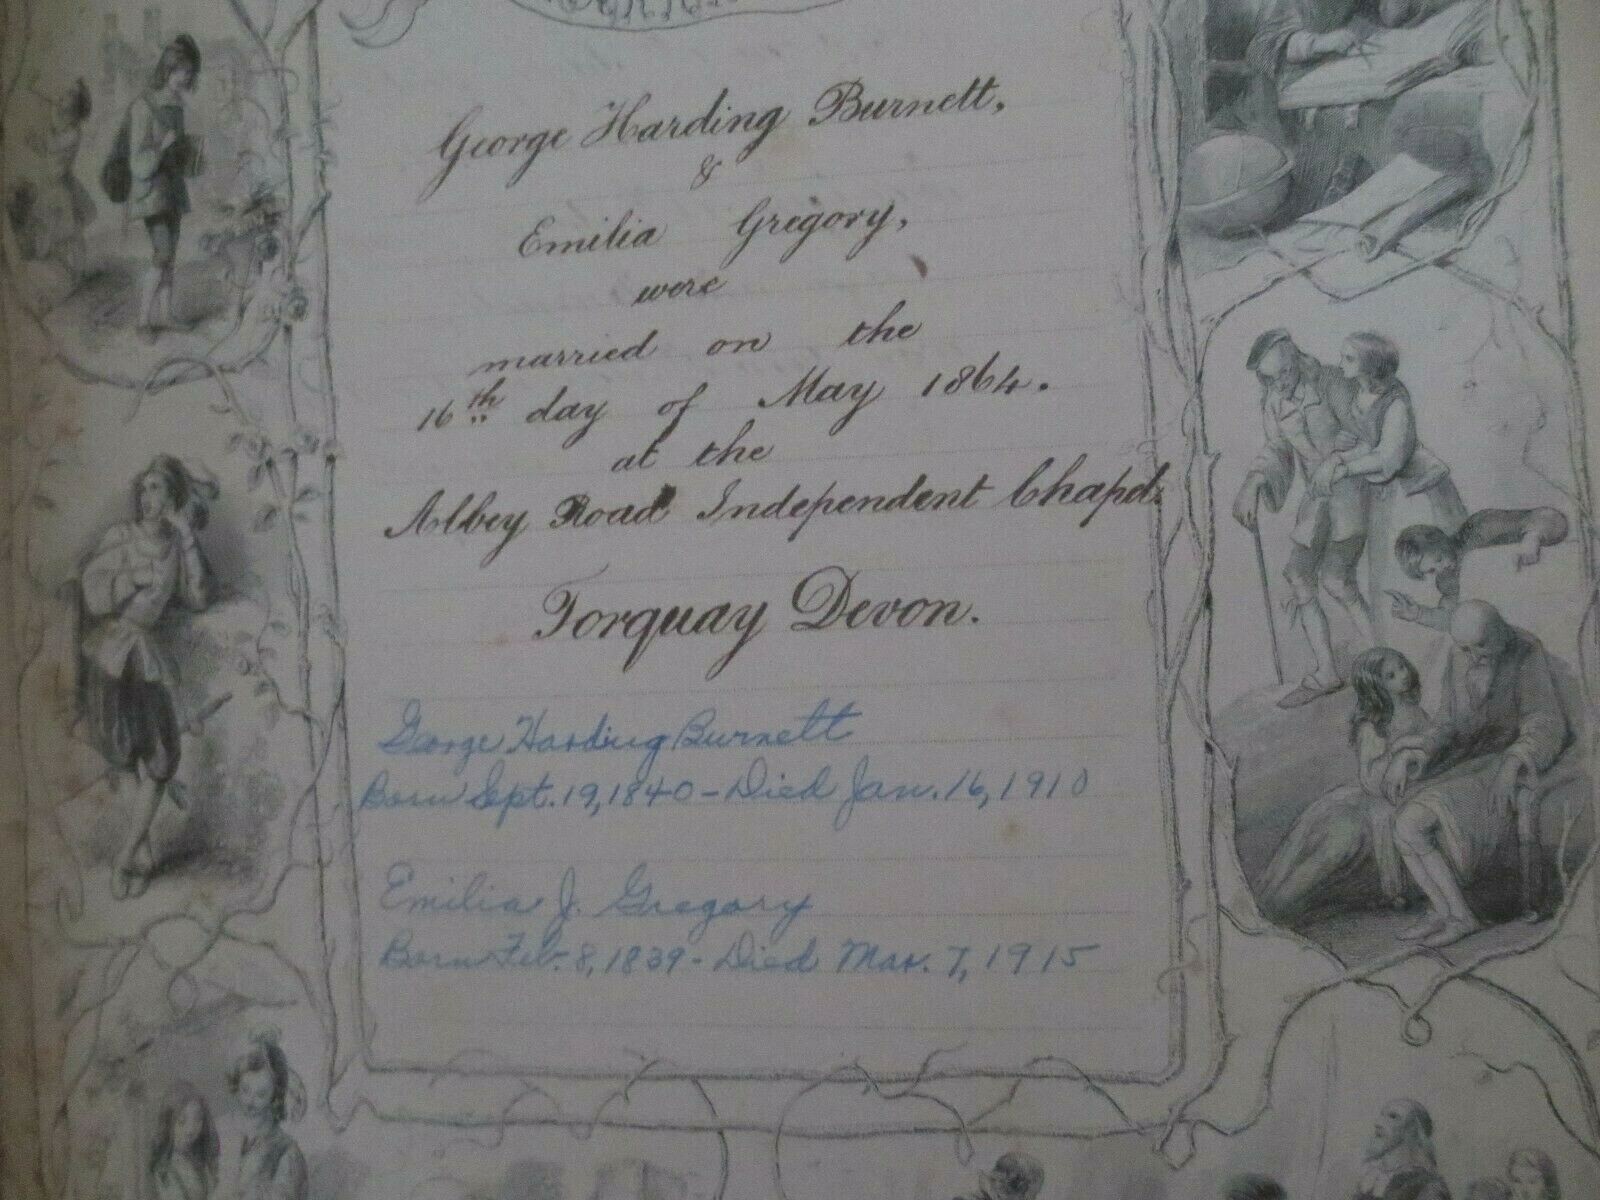 George Harding Burnett,
&
Emilia Gregory,
were
married on the
16th day of May 1864.
at the
Abbey Road Independent Chapel.
Torquay Devon.
George Harding Burnett
Born Sept. 19, 1840 - Died Jan. 16, 1910
Emilia J. Gregory
Born Feb. 8, 1839 - Died Mar. 7, 1915